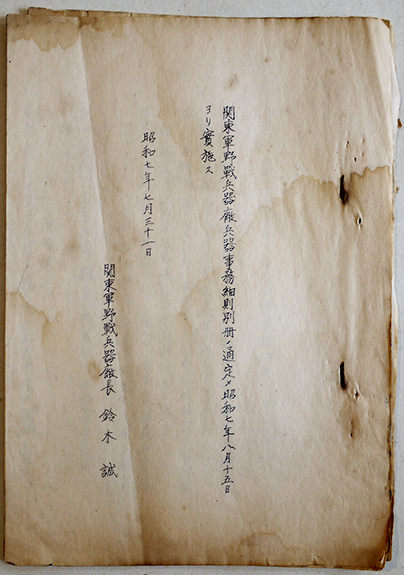 関東軍野戰兵器廠兵器事務細則別冊ノ通定メ昭和七年八月十五日
ヨリ實施ス
昭和七年七月三十一日
関東軍野戰兵器廠長 鈴木 誠